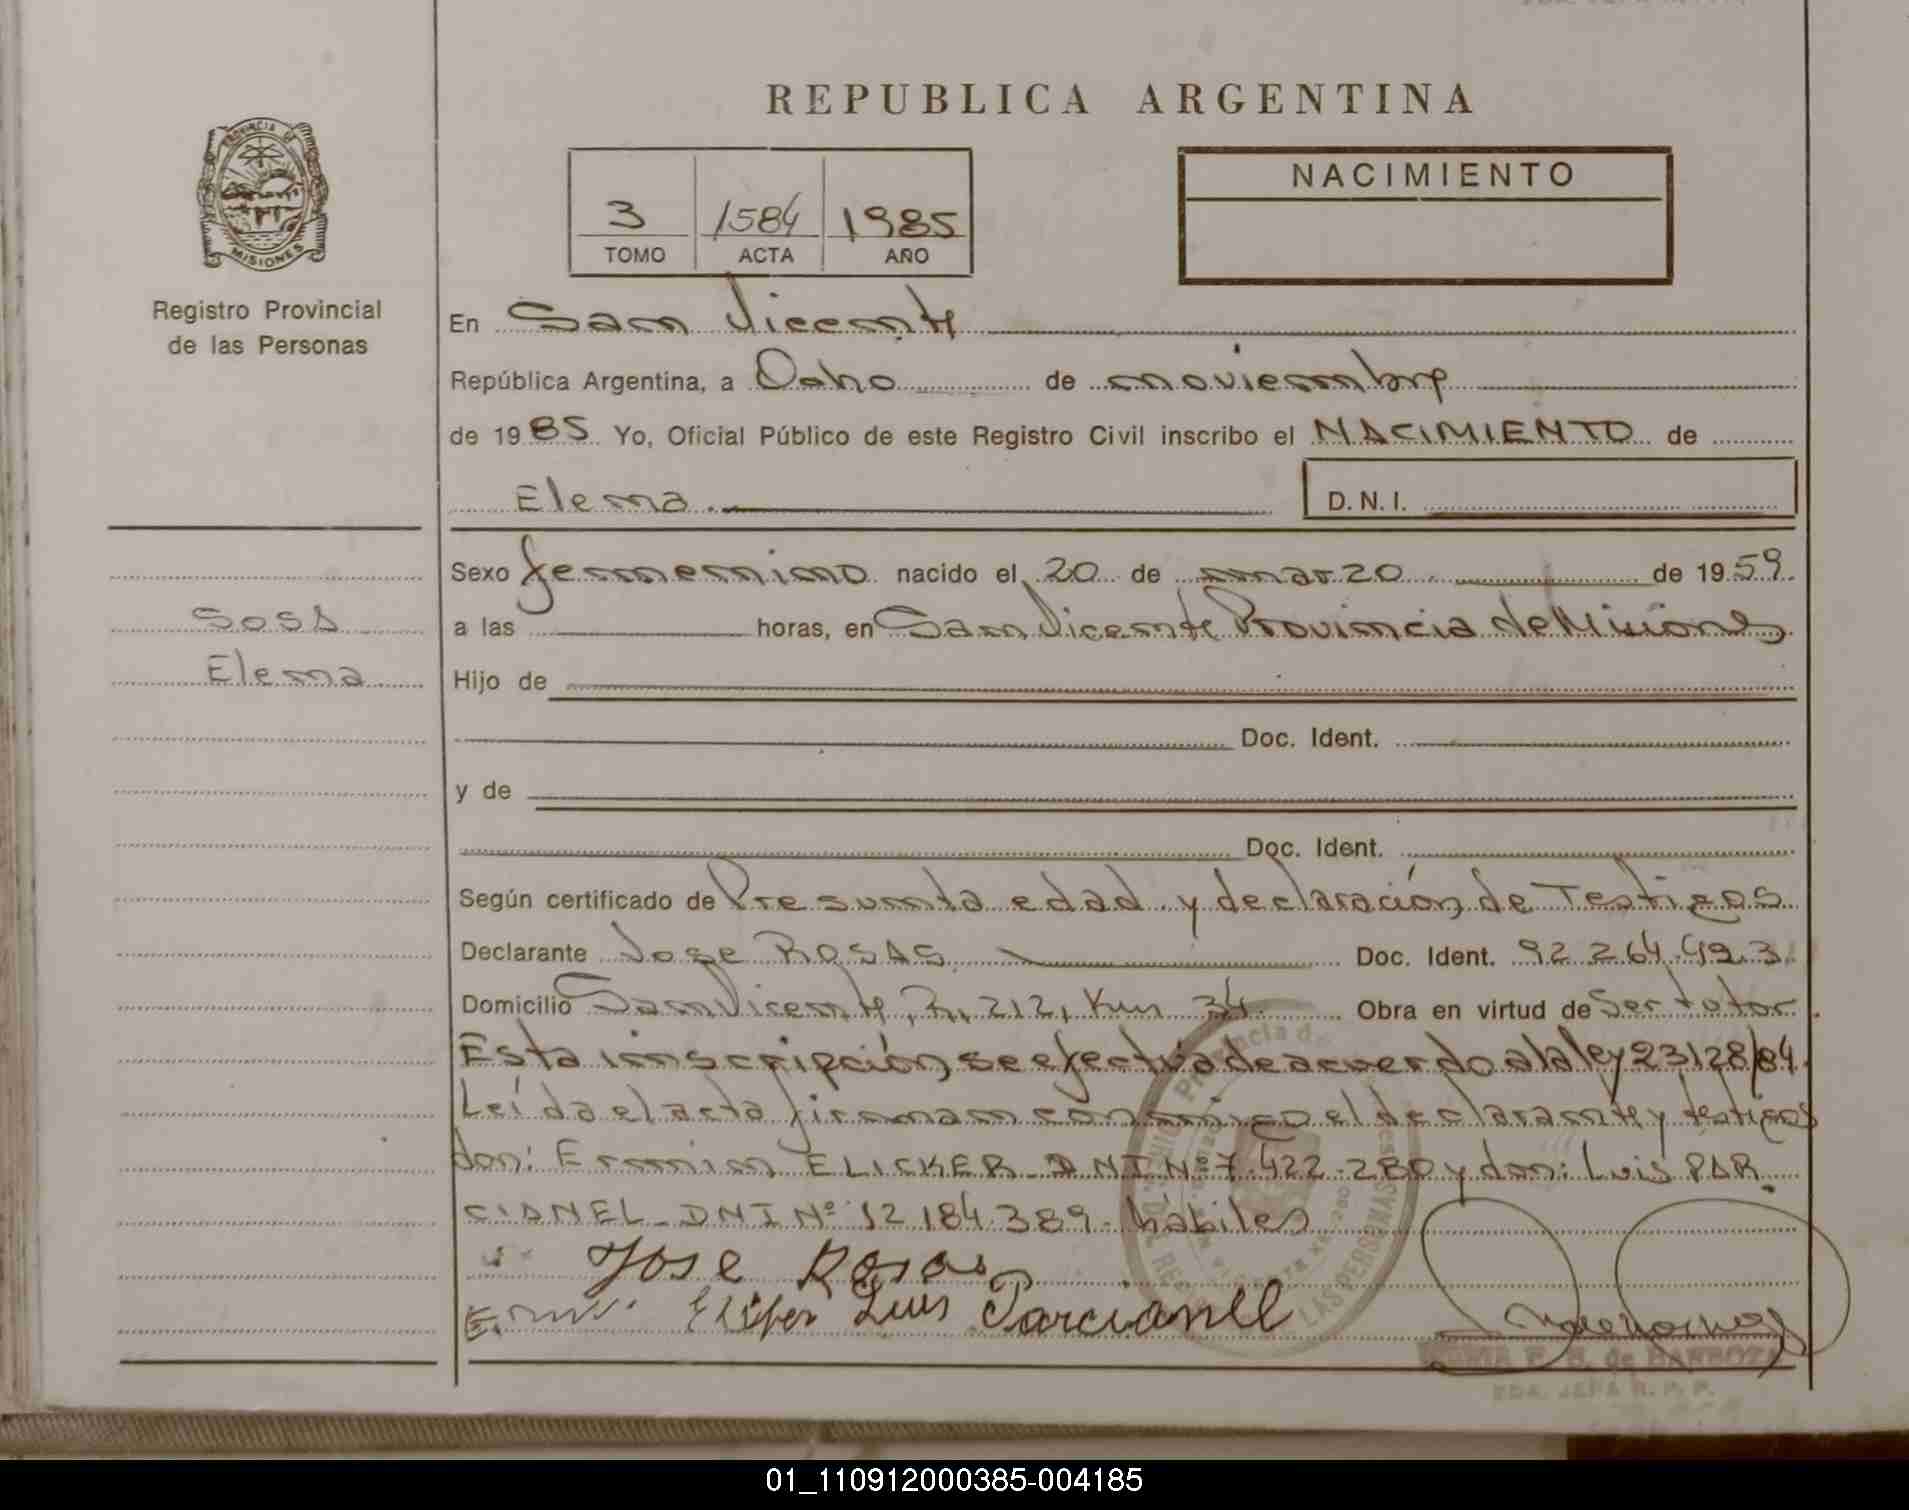 REPUBLICA ARGENTINA
PROVINCIA DE
MISIONES
Registro Provincial
de las Personas
3 1584 1985
TOMO ACTA AÑO
NACIMIENTO
En San Vicente
República Argentina, a Ocho de noviembre
de 1985 Yo, Oficial Público de este Registro Civil inscribo el NACIMIENTO de
Elena. D.N.I.
Sexo femenino nacido el 20 de marzo de 1959
Sosa
Elena
a las horas, en San Vicente Provincia de Misiones
Hijo de
Doc. Ident.
y de
Doc. Ident.
Según certificado de Presunta edad y declaración de Testigos
Declarante Jose ROSAS Doc. Ident. 92 264.493
Domicilio San Vicente, R. 212, Km 34 Obra en virtud de Ser tutor.
Esta inscripción se efectúa de acuerdo a la ley 23128/84.
Leída el acta firman conmigo el declarante y testigos
don: Ermin ELICKER DNI Nº 7.422.280 y don: Luis PAR
CIANEL DNI Nº 12 184.389. hábiles
Jose Rosas
Luis Parcianell
de BARBOZA
EDA. JEFA R. P. P.
01_110912000385-004185